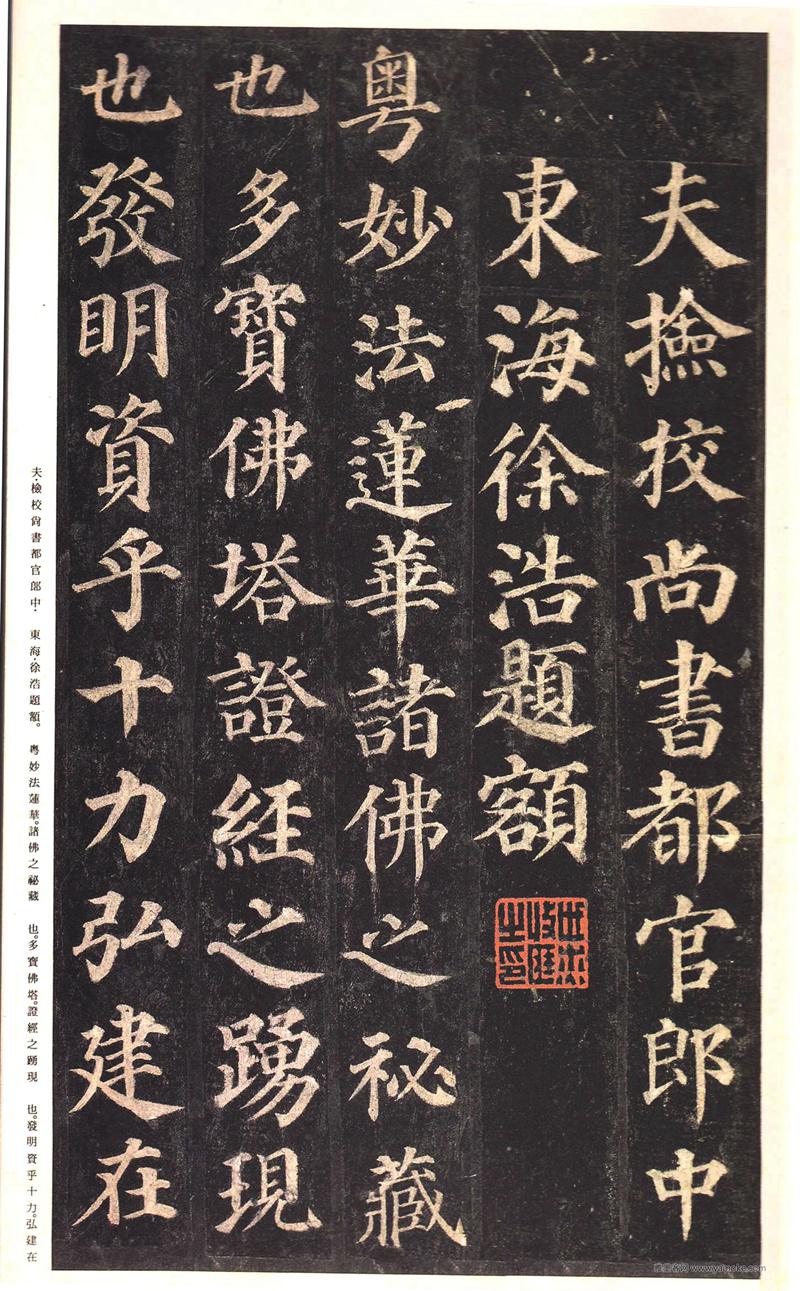 夫撿挍尚書都官郎中
東海徐浩題額
粤妙法蓮華諸佛之祕藏
也多寶佛塔證經之踴現
也發明資乎十力弘建在
夫·檢校尙書都官郎中· 東海·徐浩題額。 粤妙法蓮華。諸佛之祕藏 也。多寶佛塔。證經之踴現 也。發明資乎十力。弘建在
www.yamoke.com